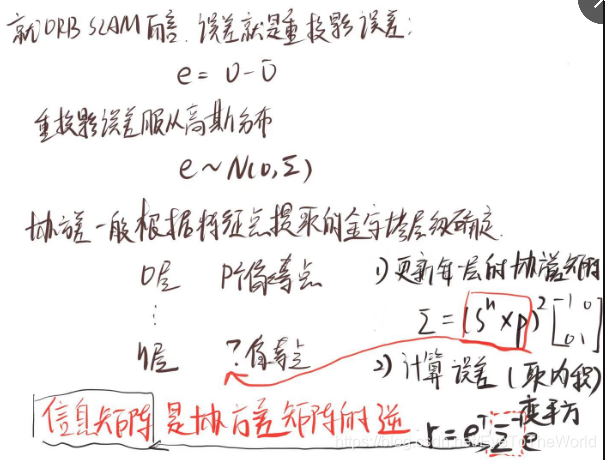 就ORB SLAM而言,误差就是重投影误差:
e = û - ū
重投影误差服从高斯分布
e ~ N(0, Σ)
协差一般根据特征点提取的金字塔层级确定.
0层 P个像素点
⋮
n层 ?个像素点
1) 更新每一层的协方差矩阵
Σ = (Sⁿ × p)² [1 0
0 1]
2) 计算误差 (取内积)
变平方
r = eᵀ Σ⁻¹ e
信息矩阵 是协方差矩阵的逆